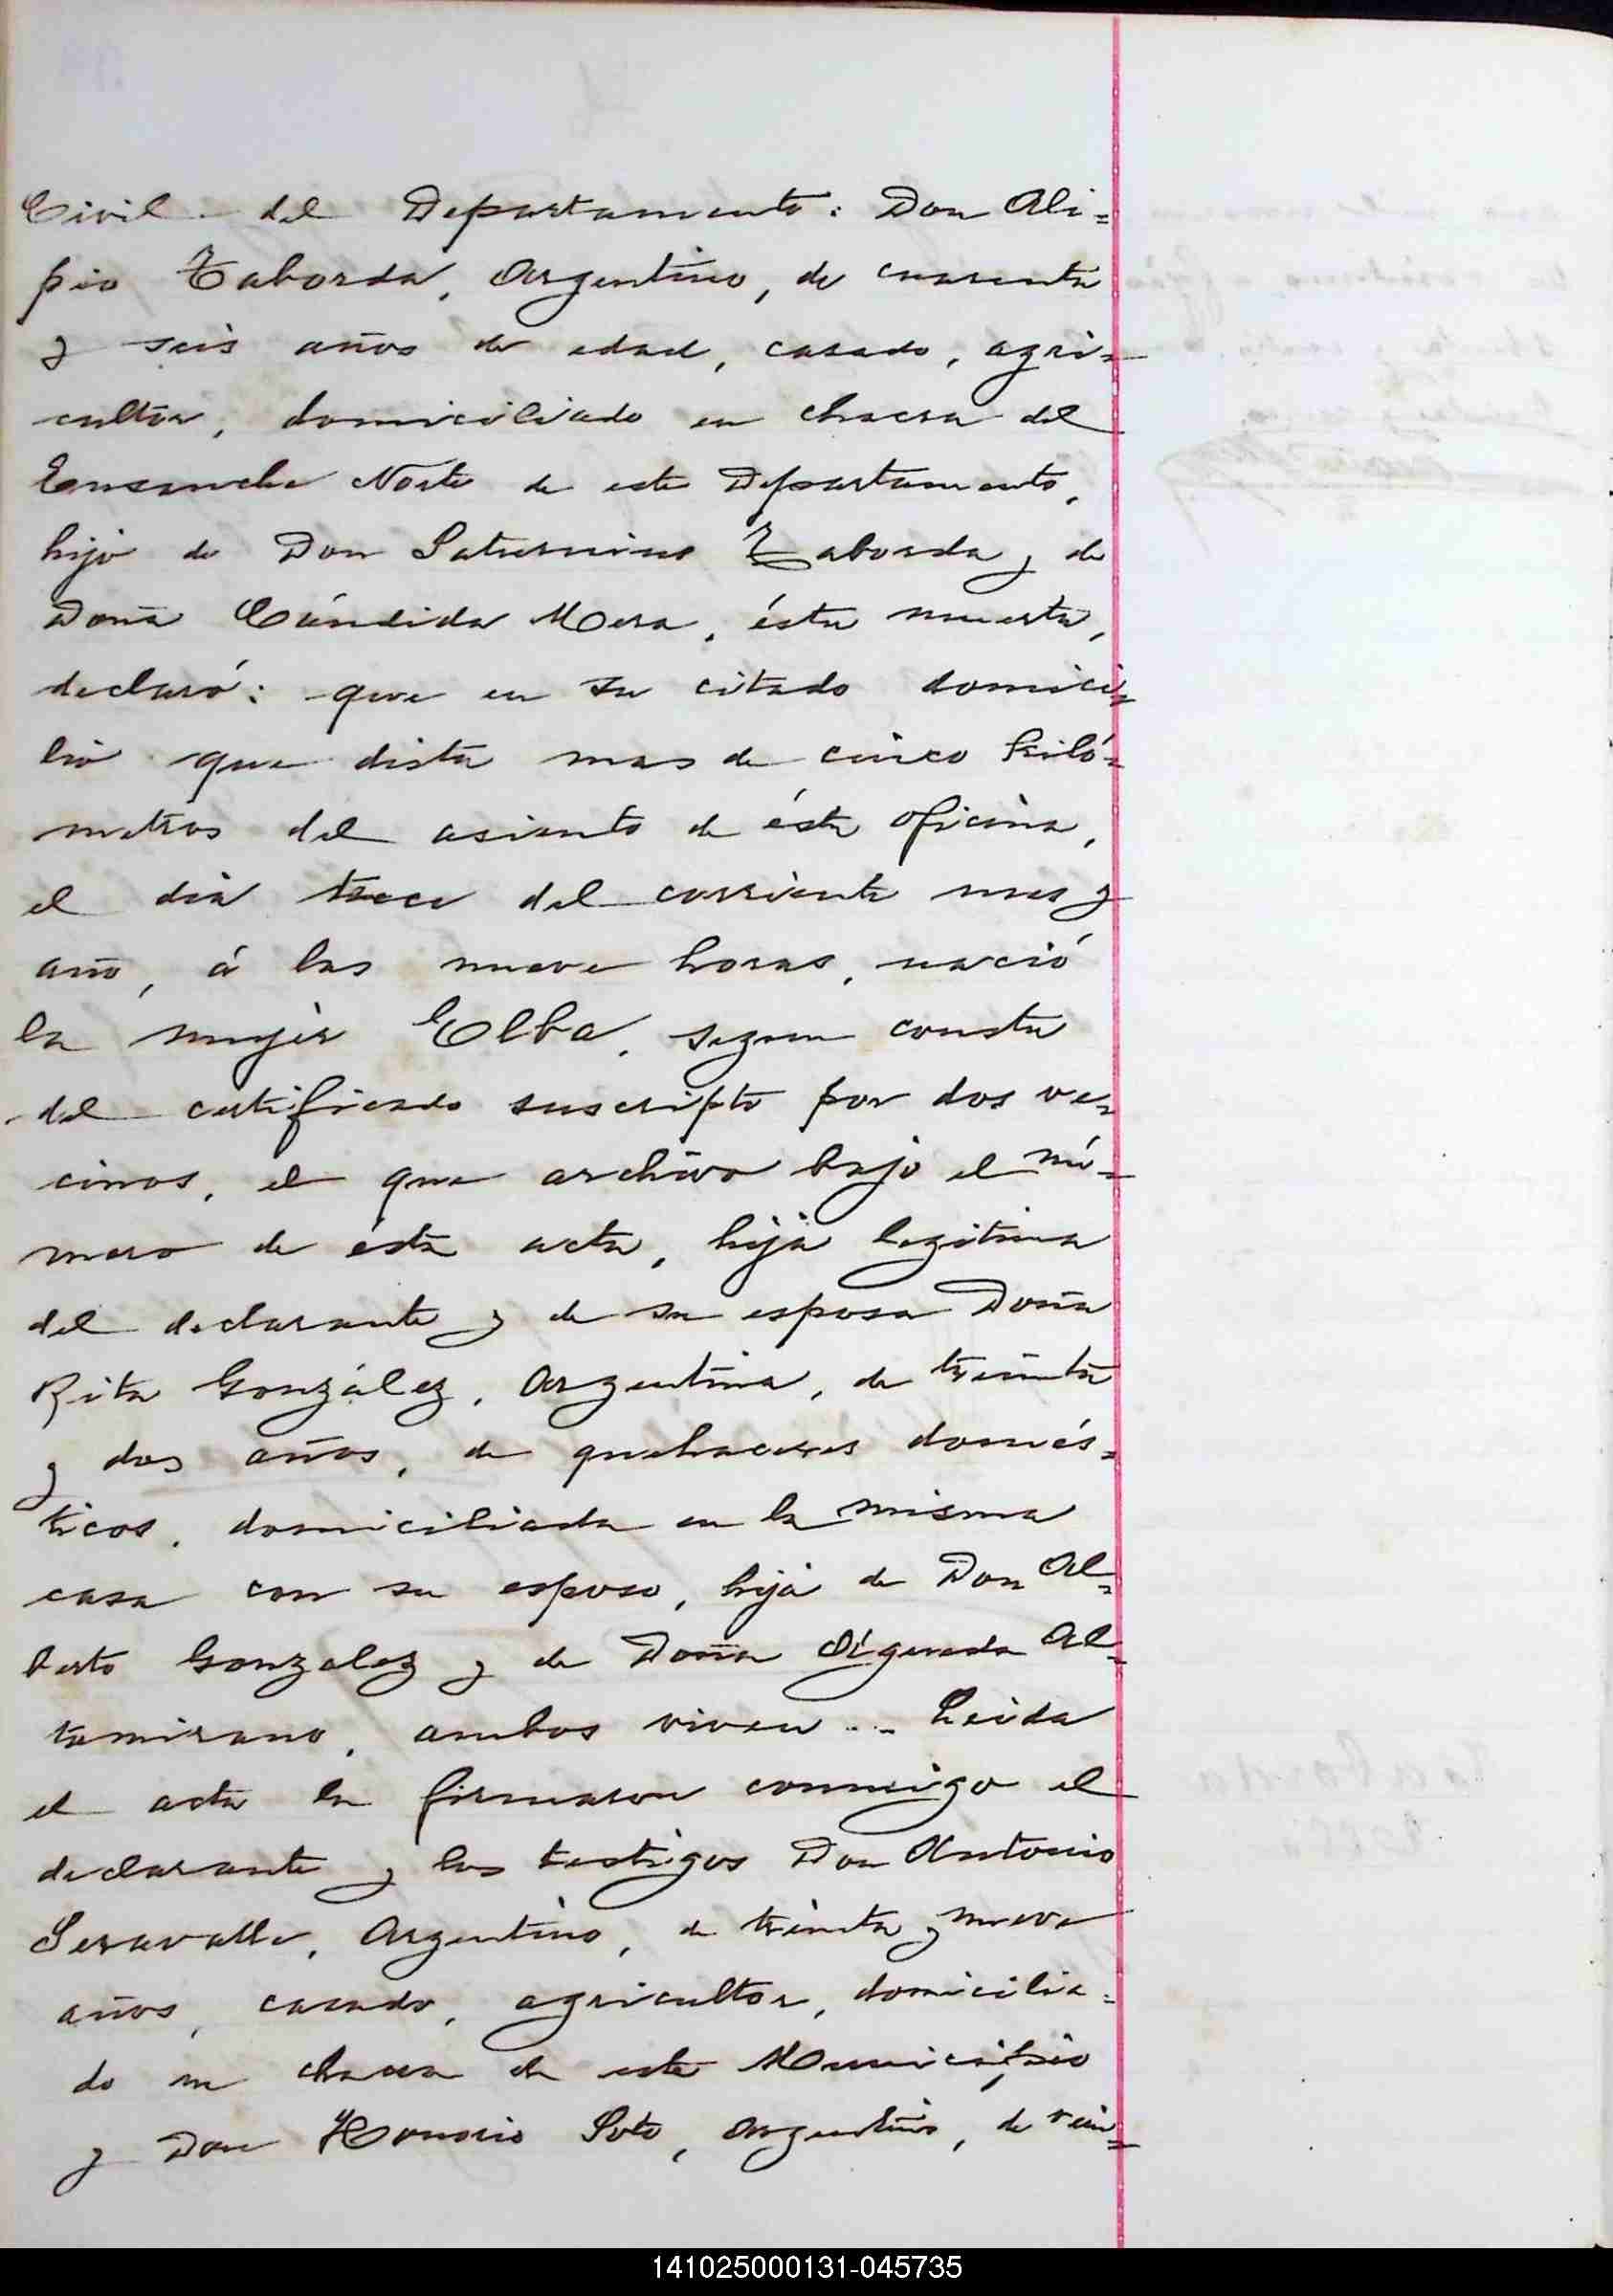 Civil del Departamento: Don Ali=
pio Taborda, Argentino, de cuarenta
y seis años de edad, casado, agri=
cultor, domiciliado en chacra del
Ensanche Norte de este Departamento,
hijo de Don Saturnino Taborda y de
Doña Cándida Mera, ésta muerta,
declaró: que en su citado domici=
lio que dista mas de cinco kiló=
metros del asiento de ésta oficina,
el dia trece del corriente mes y
año, á las nueve horas, nació
la mujer Elba, segun consta
del certificado suscripto por dos ve=
cinos, el que archivo bajo el nú=
mero de ésta acta, hija legitima
del declarante y de su esposa Doña
Rita González, Argentina, de treinta
y dos años, de quehaceres domés=
ticos, domiciliada en la misma
casa con su esposo, hija de Don Al=
berto Gonzalez y de Doña Al=
tamirano, ambos viven... Leida
el acta la firmaron conmigo el
declarante y los testigos Don Antonio
Seravalle, Argentino, de treinta y nueve
años, casado, agricultor, domicilia=
do en chacra de este Municipio
y Don Honorio Soto, Argentino, de vein=
141025000131-045735